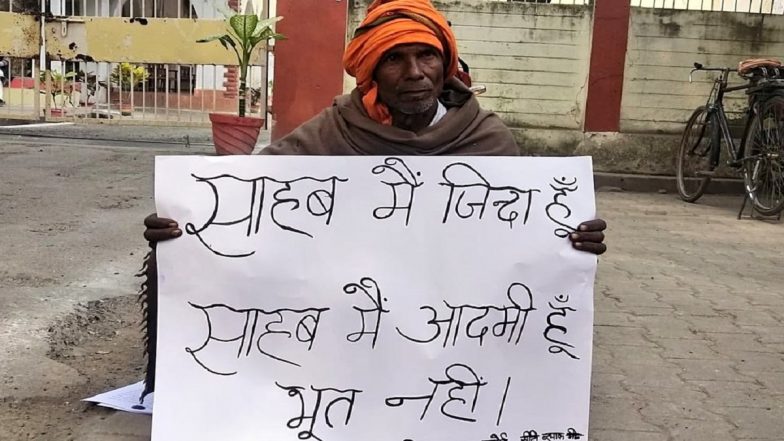 साहब मैं जिन्दा हूँ
साहब मैं आदमी हूँ
भूत नही।